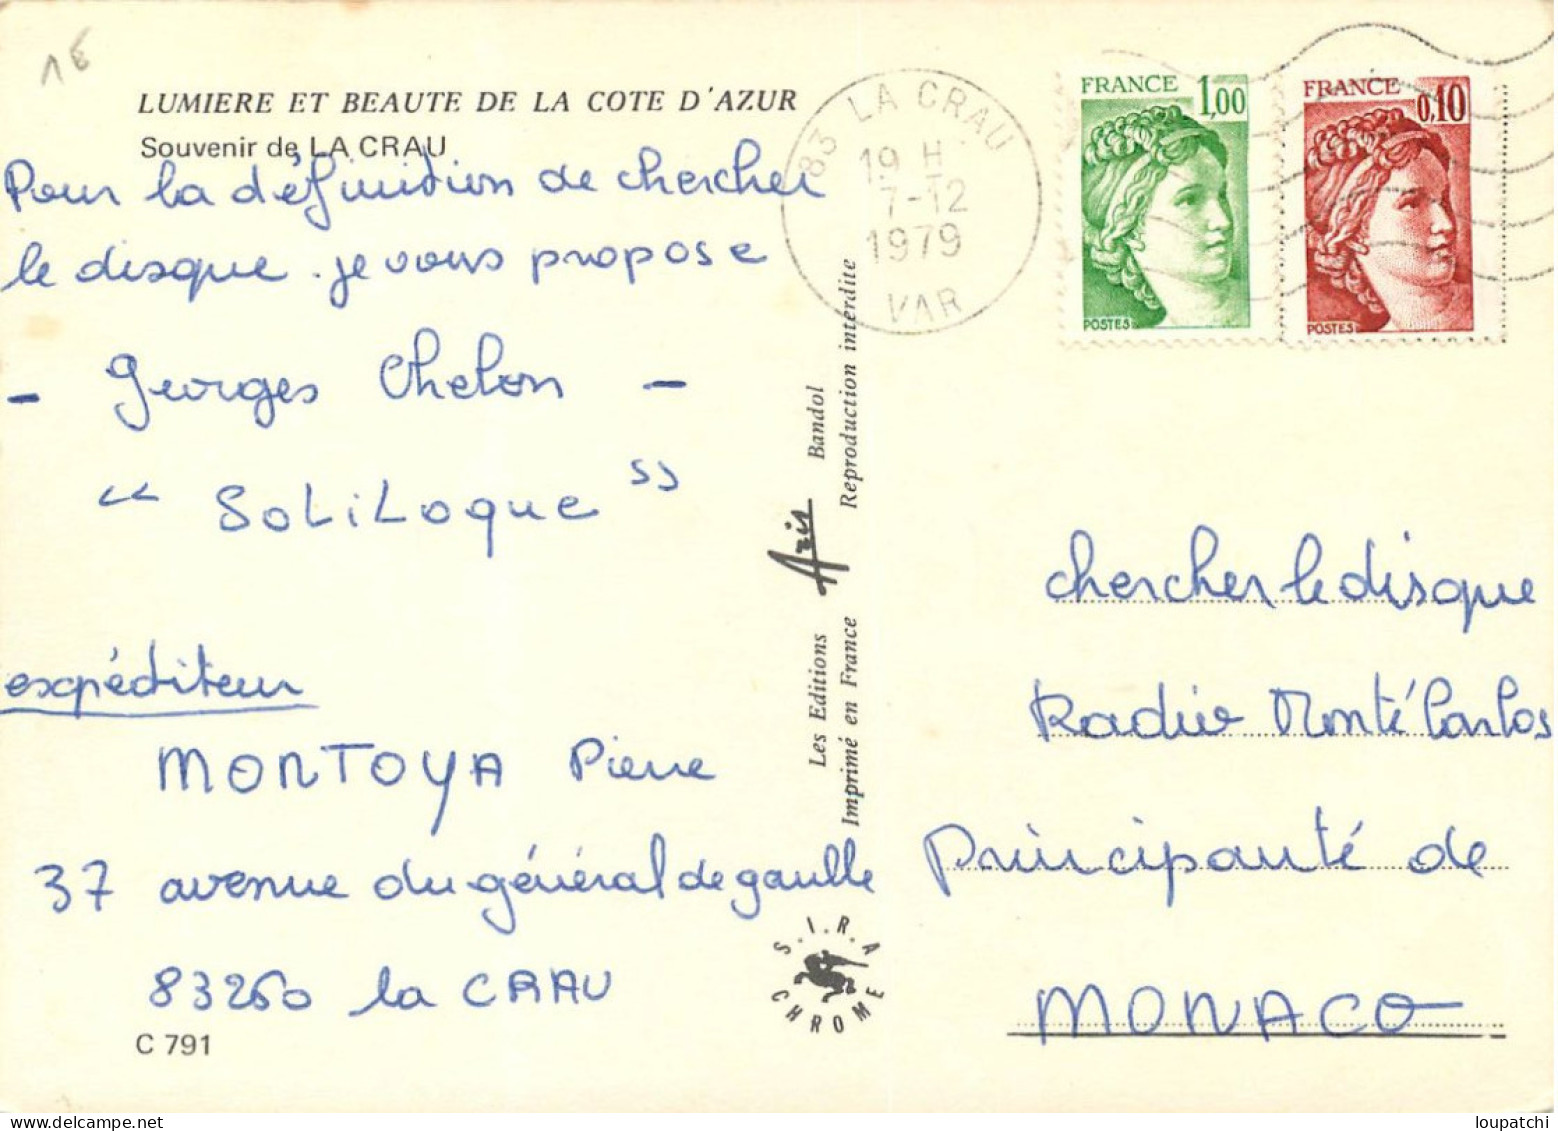 1€
LUMIERE ET BEAUTE DE LA COTE D'AZUR
Souvenir de LA CRAU
Pour la définition de chercher
le disque. je vous propose
- Georges Chelon -
“ SoLiLoque ”
expéditeur
MONTOYA Pierre
37 avenue du général de gaulle
83260 la CRAU
C 791
83 LA CRAU
19 H
7-12
1979
VAR
FRANCE 1,00
POSTES
FRANCE 0,10
POSTES
Les Editions Aris Bandol
Imprimé en France Reproduction interdite
S.I.R.A
CHROME
chercher le disque
Radio Monté Carlos
Principauté de
MONACO
loupatchi